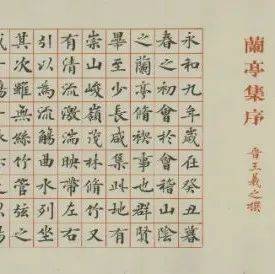 蘭亭集序
晉王羲之撰
永和九年歲在癸丑暮
春之初會於會稽山陰
之蘭亭脩禊事也群賢
畢至少長咸集此地有
崇山峻嶺茂林脩竹又
有清流激湍映帶左右
引以為流觴曲水列坐
其次雖無絲竹管弦之